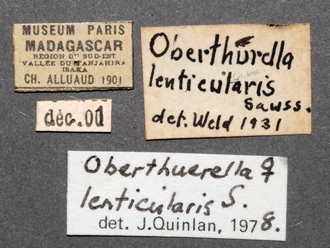 MUSEUM PARIS
MADAGASCAR
RÉGION DU SUD-EST
VALLÉE DU FANJAHIRA
ISAKA
CH. ALLUAUD 1901
déc. 00
Oberthurella
lenticularis
Sauss.
det. Weld 1931
Oberthuerella ♀
lenticularis S.
det. J.Quinlan, 1978.